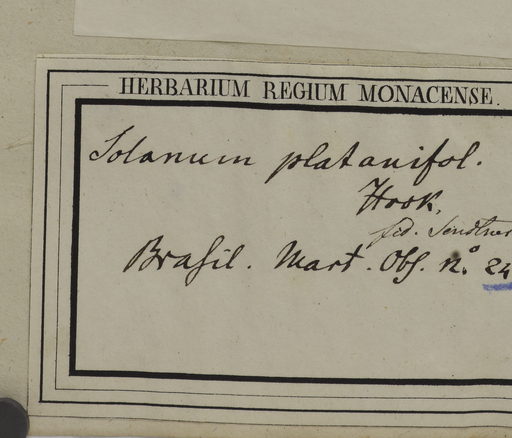 HERBARIUM REGIUM MONACENSE.
Solanum platanifol.
Hook.
fid. Sendtner
Brasil. Mart. Obs. n.° 24